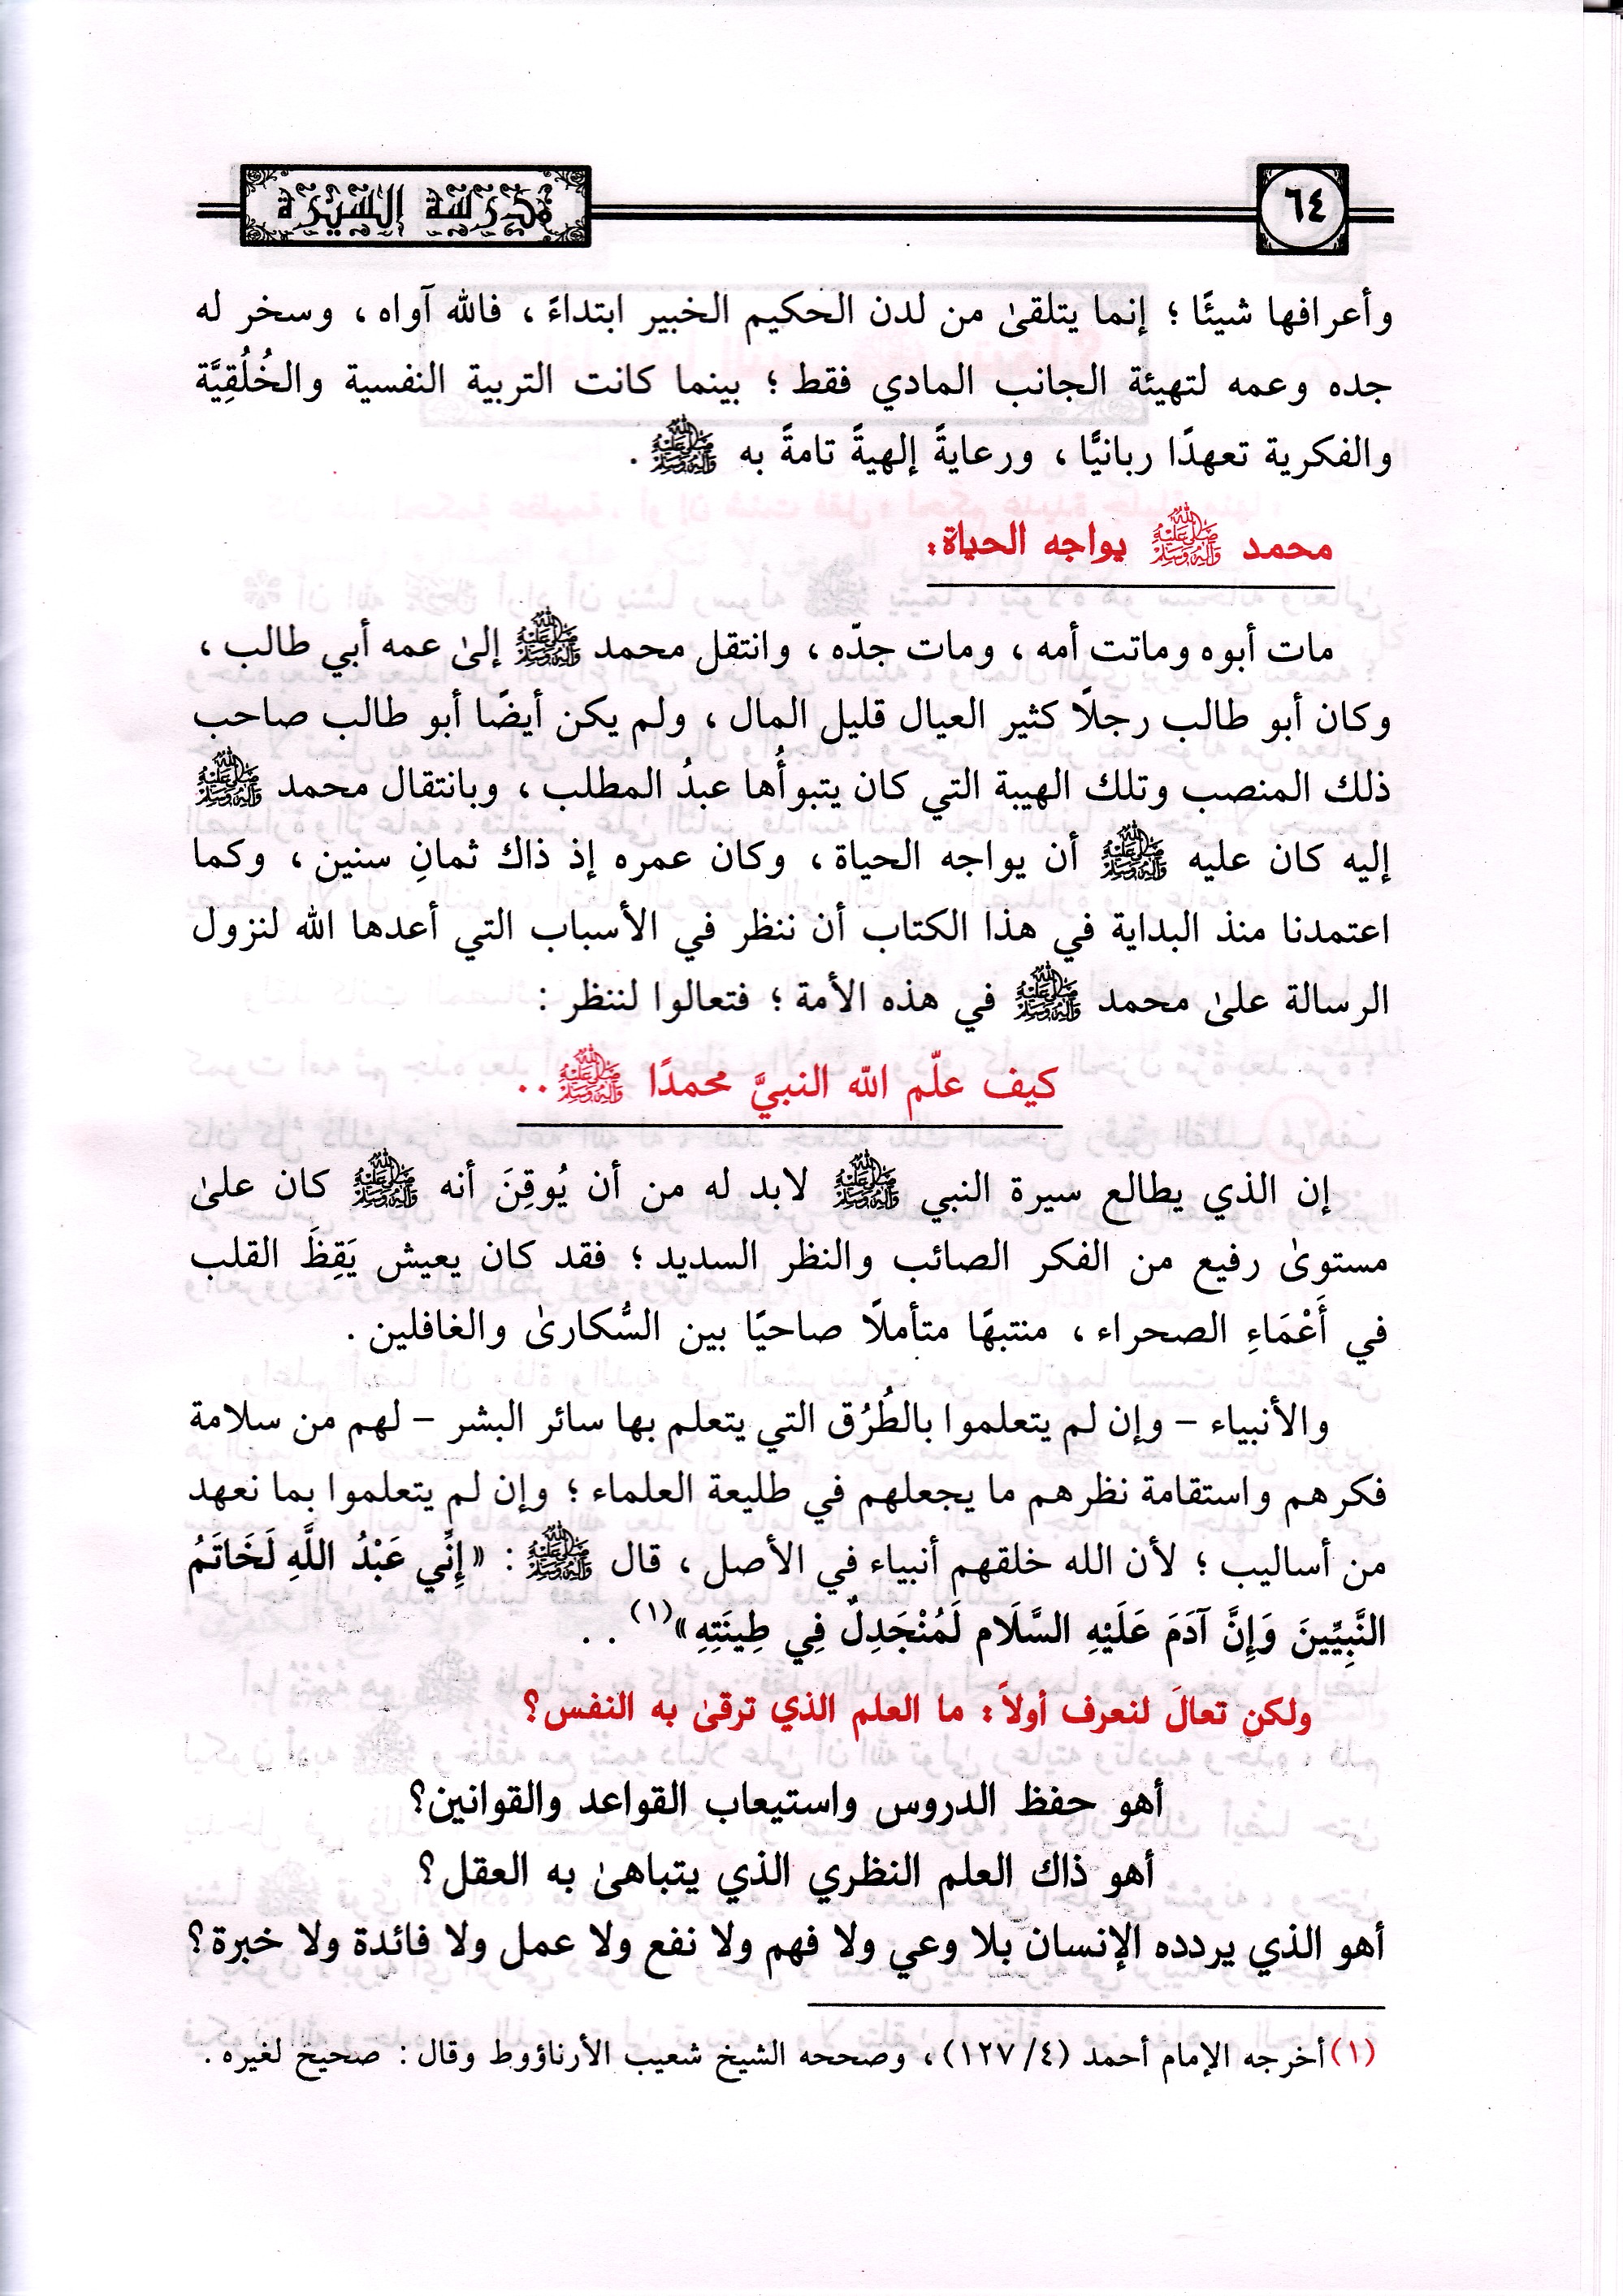 ٦٤
مدرسة السيرة
وأعرافها شيئًا ؛ إنما يتلقىٰ من لدن الحكيم الخبير ابتداءً ، فالله آواه ، وسخر له
جده وعمه لتهيئة الجانب المادي فقط ؛ بينما كانت التربية النفسية والخُلُقِيَّة
والفكرية تعهدًا ربانيًّا ، ورعايةً إلهيةً تامةً به ﷺ .
محمد ﷺ يواجه الحياة:
مات أبوه وماتت أمه ، ومات جدّه ، وانتقل محمد ﷺ إلىٰ عمه أبي طالب ،
وكان أبو طالب رجلاً كثير العيال قليل المال ، ولم يكن أيضًا أبو طالب صاحب
ذلك المنصب وتلك الهيبة التي كان يتبوأُها عبدُ المطلب ، وبانتقال محمد ﷺ
إليه كان عليه ﷺ أن يواجه الحياة ، وكان عمره إذ ذاك ثمانِ سنين ، وكما
اعتمدنا منذ البداية في هذا الكتاب أن ننظر في الأسباب التي أعدها الله لنزول
الرسالة علىٰ محمد ﷺ في هذه الأمة ؛ فتعالوا لننظر :
كيف علّم الله النبيَّ محمدًا ﷺ..
إن الذي يطالع سيرة النبي ﷺ لابد له من أن يُوقِنَ أنه ﷺ كان علىٰ
مستوىٰ رفيع من الفكر الصائب والنظر السديد ؛ فقد كان يعيش يَقِظَ القلب
في أَعْمَاءِ الصحراء ، منتبهًا متأملًا صاحيًا بين السُّكارىٰ والغافلين .
والأنبياء – وإن لم يتعلموا بالطُرُق التي يتعلم بها سائر البشر – لهم من سلامة
فكرهم واستقامة نظرهم ما يجعلهم في طليعة العلماء ؛ وإن لم يتعلموا بما نعهد
من أساليب ؛ لأن الله خلقهم أنبياء في الأصل ، قال ﷺ : «إِنِّي عَبْدُ اللَّهِ لَخَاتَمُ
النَّبِيِّينَ وَإِنَّ آدَمَ عَلَيْهِ السَّلَام لَمُنْجَدِلٌ فِي طِينَتِهِ»(١) . .
ولكن تعالَ لنعرف أولاً: ما العلم الذي ترقىٰ به النفس؟
أهو حفظ الدروس واستيعاب القواعد والقوانين؟
أهو ذاك العلم النظري الذي يتباهىٰ به العقل؟
أهو الذي يردده الإنسان بلا وعي ولا فهم ولا نفع ولا عمل ولا فائدة ولا خبرة؟
(١) أخرجه الإمام أحمد (٤/ ١٢٧) ، وصححه الشيخ شعيب الأرناؤوط وقال : صحيح لغيره .